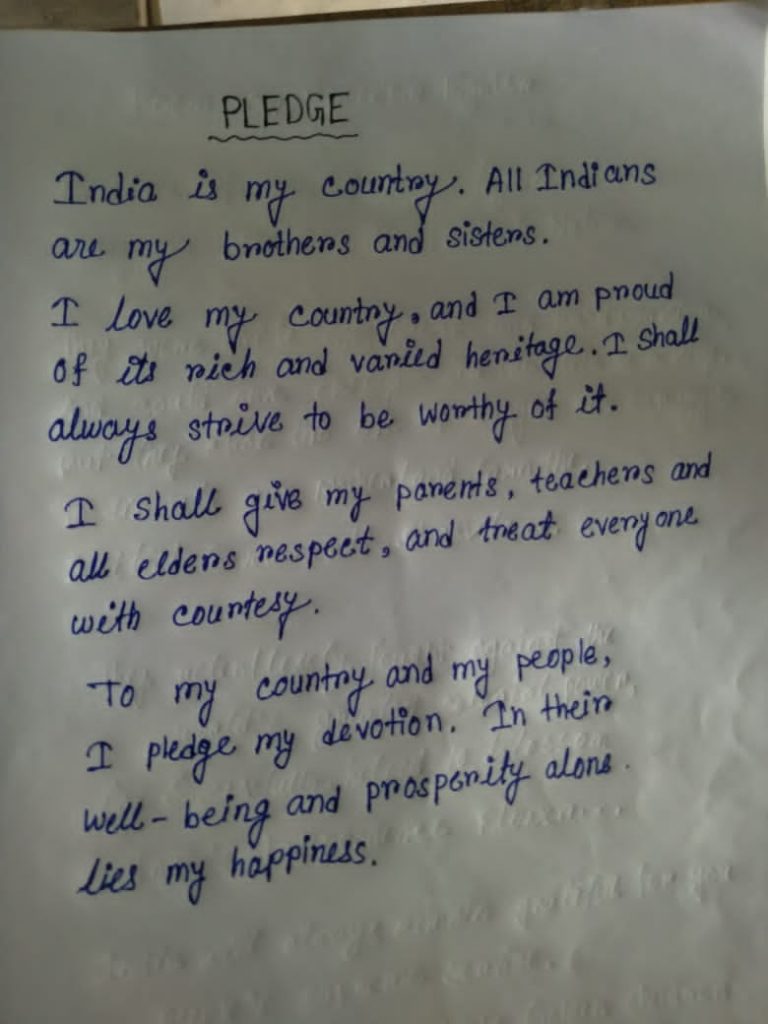 PLEDGE
India is my country. All Indians
are my brothers and sisters.
I love my country, and I am proud
of its rich and varied heritage. I shall
always strive to be worthy of it.
I shall give my parents, teachers and
all elders respect, and treat everyone
with courtesy.
To my country and my people,
I pledge my devotion. In their
well-being and prosperity alone.
lies my happiness.